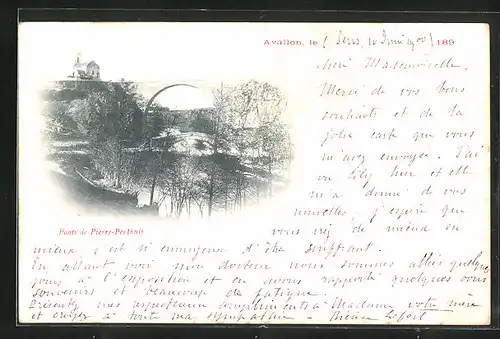 Avallon, le ( Sens, 10 Juin 1900 ) 189
Mademoiselle,
Merci de vos bons
souhaits et de la
jolie carte que vous
m'avez envoyée. J'ai
vu Lily hier et elle
m'a donné de vos
nouvelles, j'espère que
Ponts de Pierre-Perthuis
vous de mieux en
mieux, c'est si ennuyeux d'être souffrant.
En allant voir mon docteur nous sommes allés quelques
jours à l'exposition et en avons rapporté quelques uns
souvenirs et beaucoup de fatigue.
Présentez mes compliments à Madame votre mère
et croyez à toute ma sympathie -